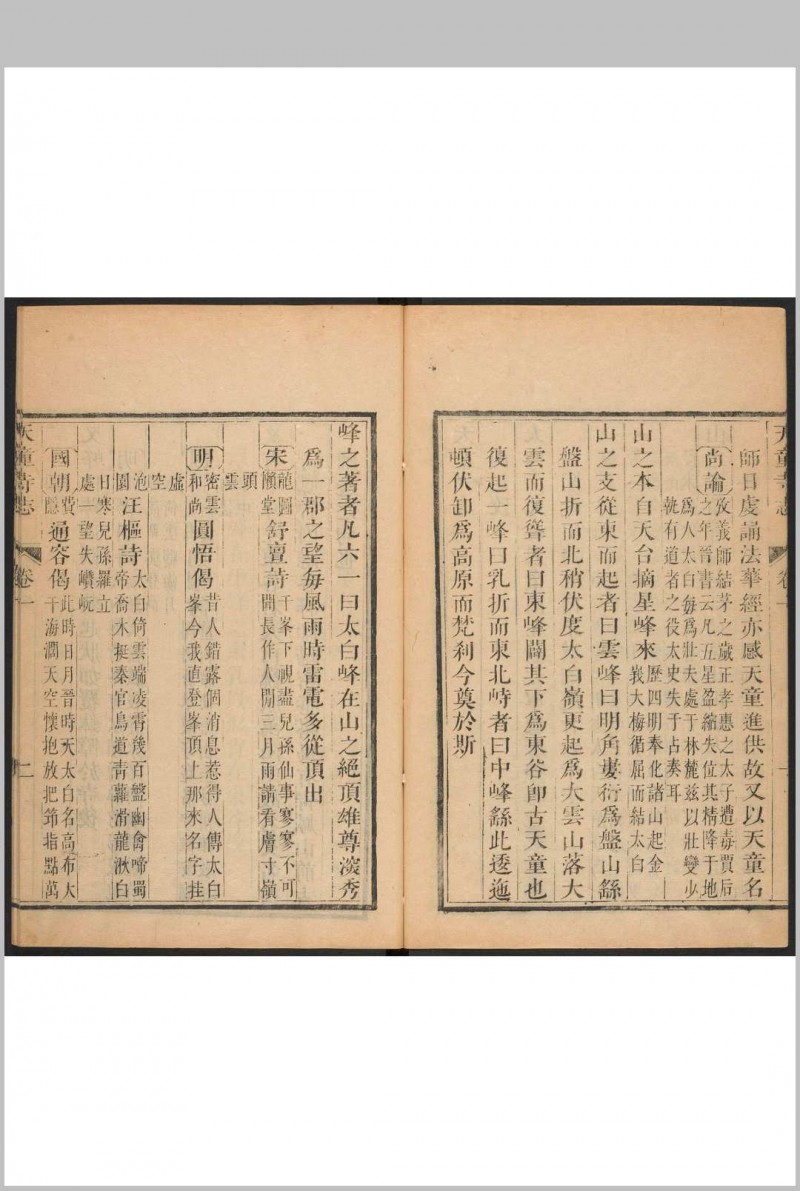 天童寺志
師日虔誦法華經亦感天童進供故又以天童名
尚論
攷義師結茅之歲正孝惠之太子遭毒賈后
之年晉書云凡五星盈縮失位其精降于地
爲人太白每爲壯夫處于林麓兹以壯變少
執有道者之役太史失于占奏耳
山之本自天台摘星峰來
歷四明奉化諸山起金
峩大梅循屈而結太白
山之支從東而起者曰雲峰曰明角婁衍爲盤山繇
盤山折而北稍伏度太白嶺更起爲大雲山落大
雲而復聳者曰東峰闢其下爲東谷卽古天童也
復起一峰曰乳折而東北峙者曰中峰繇此逶迤
頓伏卸爲高原而梵刹今奠於斯
峰之著者凡六一曰太白峰在山之絶頂雄尊深秀
爲一郡之望每風雨時雷電多從頂出
宋
龍圖
懶堂
舒亶詩
千峯下視盡兒孫仙事寥寥不可
聞長作人間三月雨請看膚寸嶺
頭
雲
明
密雲
和尚
圓悟偈
昔人錯露個消息惹得人傳太白
峯今我直登峯頂上那來名字挂
虛
空
汪樞詩
太白倚雲端凌霄幾百盤幽禽啼蜀
帝喬木挺秦官鳥道靑蘿滑龍湫白
日寒兒孫羅立
處一望失巑岏
國朝
費
隱
通容偈
此時日月晉時天太白名高布大
千海濶天空懷抱放把筇指點萬
天童寺志
卷一
二